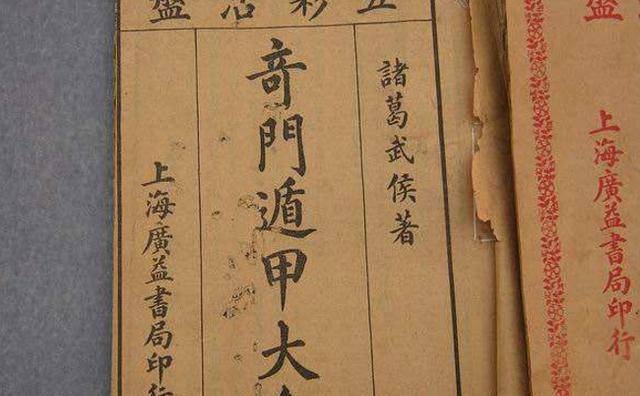 五彩盤
諸葛武侯著
奇門遁甲大
上海廣益書局印行
盤
上海廣益書局印行